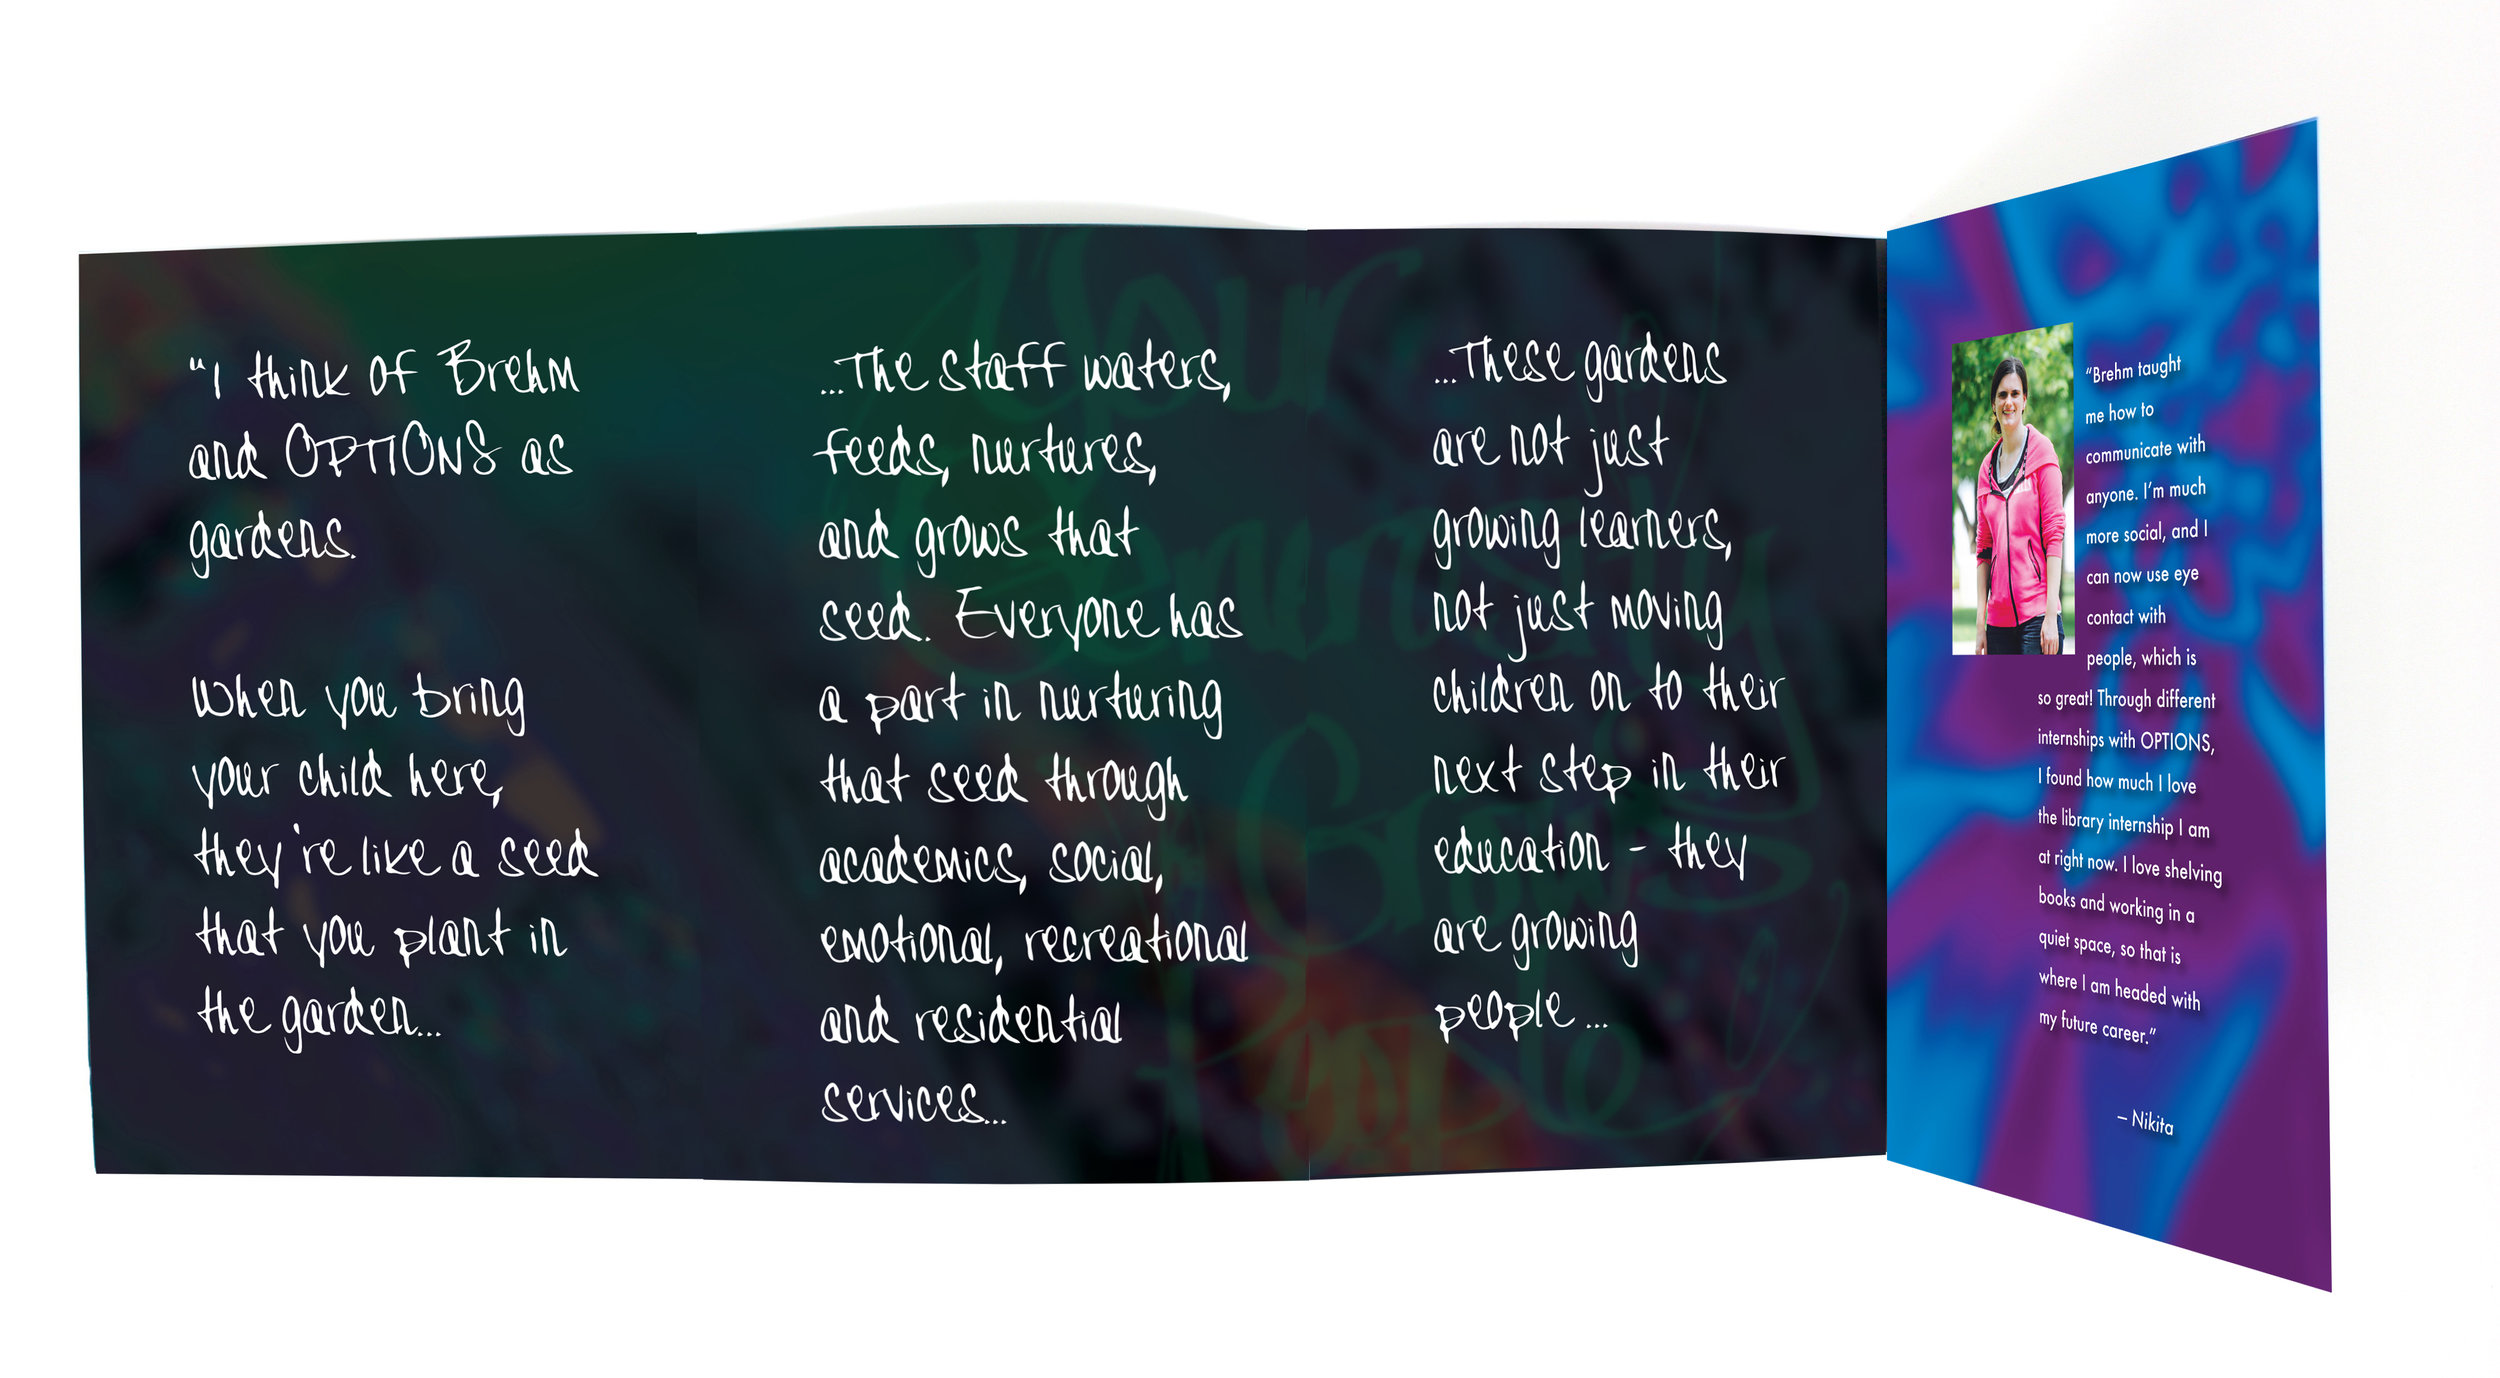 “I think of Brehm
and OPTIONS as
gardens.
When you bring
your child here,
they're like a seed
that you plant in
the garden...
...The staff waters,
feeds, nurtures,
and grows that
seed. Everyone has
a part in nurturing
that seed through
academics, social,
emotional, recreational
and residential
services...
...These gardens
are not just
growing learners,
not just moving
children on to their
next step in their
education - they
are growing
people...
Your
Generosity
Grows
People
“Brehm taught
me how to
communicate with
anyone. I’m much
more social, and I
can now use eye
contact with
people, which is
so great! Through different
internships with OPTIONS,
I found how much I love
the library internship I am
at right now. I love shelving
books and working in a
quiet space, so that is
where I am headed with
my future career.”
– Nikita